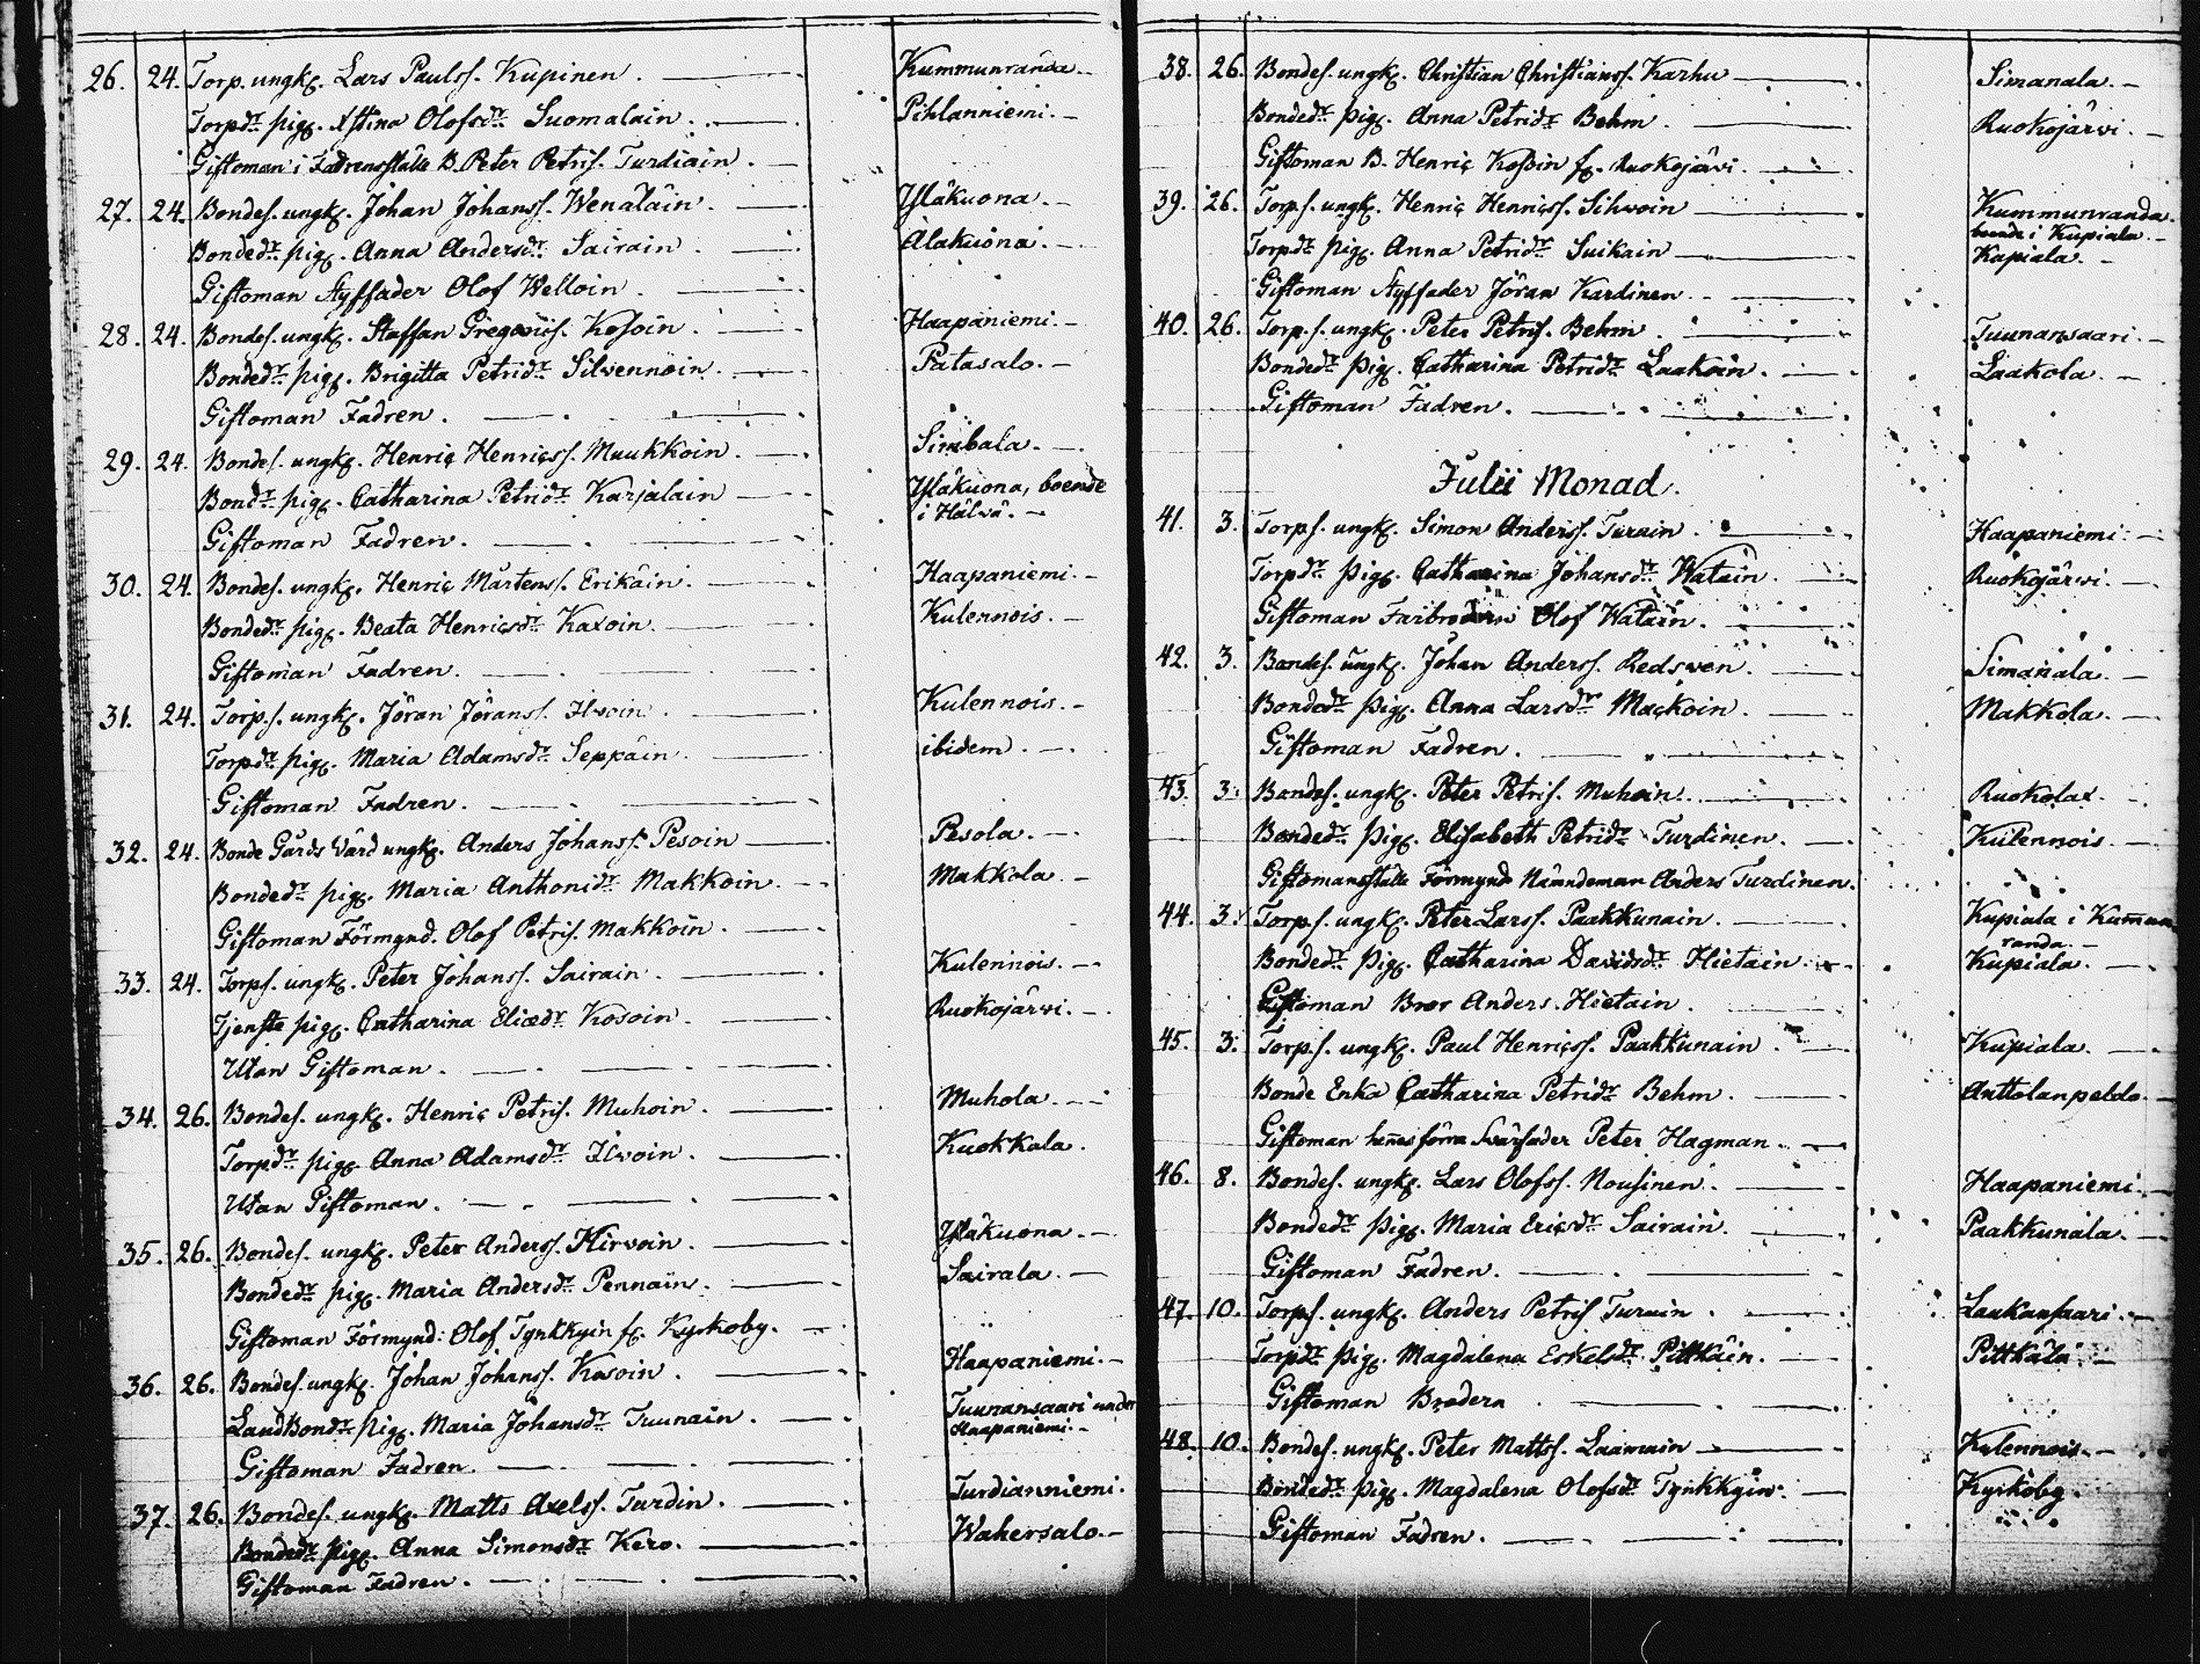 26. 24. Torp. ungk. Lars Paulss. Kupinen. Kummunranda.
Torpdr. pig. Stina Olofsdr. Suomalain. Pihlanniemi.
Giftoman i Fadrensställe B. Peter Petris. Turdiain.
27. 24. Bondes. ungk. Johan Johanss. Wenäläin. Yläkuona.
Bondedr. pig. Anna Andersdr. Sairain. Alakuona.
Giftoman Styffader Olof Welloin.
28. 24. Bondes. ungk. Staffan Gregoriis. Kosoin. Haapaniemi.
Bondedr. pig. Brigitta Petridr. Silvennoin. Patasalo.
Giftoman Fadren.
29. 24. Bondes. ungk. Henric Henricss. Muukkoin. Simbala.
Bondr. pig. Catharina Petridr. Karjalain Yläkuona, boende
i Hälvä.
Giftoman Fadren.
30. 24. Bondes. ungk. Henric Mårtenss. Erikäin. Haapaniemi.
Bondedr. pig. Beata Henricsdr. Kaxoin. Kulennois.
Giftoman Fadren.
31. 24. Torp.s. ungk. Jöran Jöranss. Ilvoin. Kulennois.
Torpdr. pig. Maria Adamsdr. Seppäin. ibidem.
Giftoman Fadren.
32. 24. Bonde Gårds Vård ungk. Anders Johanss. Pesoin Pesola.
Bondedr. pig. Maria Anthonidr. Makkoin. Makkola.
Giftoman Förmynd. Olof Petris. Makkoin.
33. 24. Torps. ungk. Peter Johanss. Sairain. Kulennois.
Tjenste pig. Catharina Eliædr. Kosoin. Ruokojärvi.
Utan Giftoman.
34. 26. Bondes. ungk. Henric Petris. Muhoin. Muhola.
Torpdr. pig. Anna Adamsdr. Ilvoin. Kuokkala.
Utan Giftoman.
35. 26. Bondes. ungk. Peter Anderss. Hirvoin. Yläkuona.
Bondedr. pig. Maria Andersdr. Pennain. Sairala.
Giftoman Förmynd: Olof Tynkkyin fr. Kyrkoby.
36. 26. Bondes. ungk. Johan Johanss. Kosoin. Haapaniemi.
LandBondr. pig. Maria Johansdr. Tuunain. Tuunansaari under
Haapaniemi.
Giftoman Fadren.
37. 26. Bondes. ungk. Matts Axelss. Turdin. Turdianniemi.
Bondedr. pig. Anna Simonsdr. Kero. Wahersalo.
Giftoman Fadren.
38. 26. Bondes. ungk. Christian Christianss. Karhu Simanala.
Bondedr. pig. Anna Petridr. Behm. Ruokojärvi.
Giftoman B. Henric Kosoin fr. Ruokojärvi.
39. 26. Torps. ungk. Henric Henricss. Sihvoin Kummunranda.
boende i Kupiala.
Torpdr. pig. Anna Petridr. Suikain Kupiala.
Giftoman Styffader Jöran Kardinen.
40. 26. Torp.s. ungk. Peter Petris. Behm. Tuunansaari.
Bondedr. pig. Catharina Petridr. Laakoin. Laakola.
Giftoman Fadren.
Julii Monad.
41. 3. Torps. ungk. Simon Anderss. Turuin. Haapaniemi.
Torpdr. pig. Catharina Johansdr. Watain. Ruokojärwi.
Giftoman Farbrodren Olof Watain.
42. 3. Bondes. ungk. Johan Anderss. Redsven. Simanala.
Bondedr. pig. Anna Larsdr. Mackoin. Makkola.
Giftoman Fadren.
43. 3. Bondes. ungk. Peter Petris. Muhoin. Ruokolax.
Bondedr. pig. Elisabeth Petridr. Turdinen. Kulennois.
Giftomansställe Förmynd Nämndeman Anders Turdinen.
44. 3. Torp.s. ungk. Peter Larss. Paakkunain. Kupiala i Kummun
randa.
Bondedr. pig. Catharina Davidsdr. Hietain. Kupiala.
Giftoman Bror Anders Hietain.
45. 3. Torp.s. ungk. Paul Henricss. Paakkunain. Kupiala.
Bonde Enka Catharina Petridr. Behm. Anttolanpeldo.
Giftoman hennes förra Svärfader Peter Hagman.
46. 8. Bondes. ungk. Lars Olofss. Nousinen. Haapaniemi.
Bondedr. pig. Maria Ericsdr. Sairain. Paakkunala.
Giftoman Fadren.
47. 10. Torps. ungk. Anders Petris Turuin. Laukansaari.
Torpdr. pig. Magdalena Eskelsdr. Pittkäin. Pittkälä.
Giftoman Brodern
48. 10. Bondes. ungk. Peter Mattss. Laamain Kulennois.
Bondedr. pig. Magdalena Olofsdr. Tynkkyin. Kyrkoby.
Giftoman Fadren.